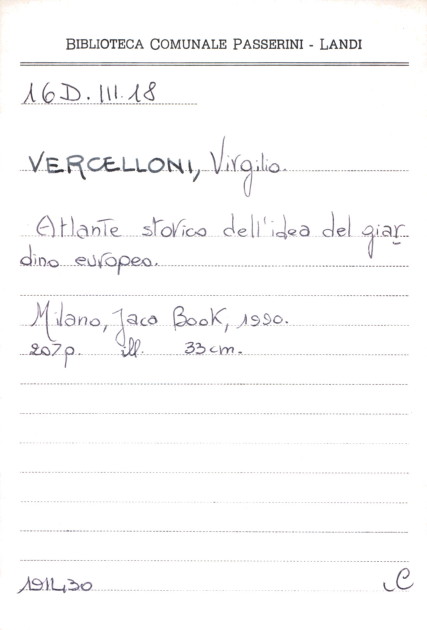 BIBLIOTECA COMUNALE PASSERINI - LANDI
16D.III.18
VERCELLONI, Virgilio.
Atlante storico dell'idea del giar-
dino europeo.
Milano, Jaca Book, 1990.
207p. ill. 33cm.
C